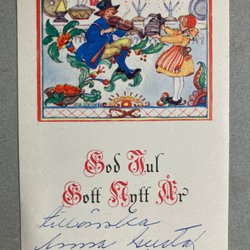 God Jul
Gott Nytt År
tillönska
Anna Gustaf